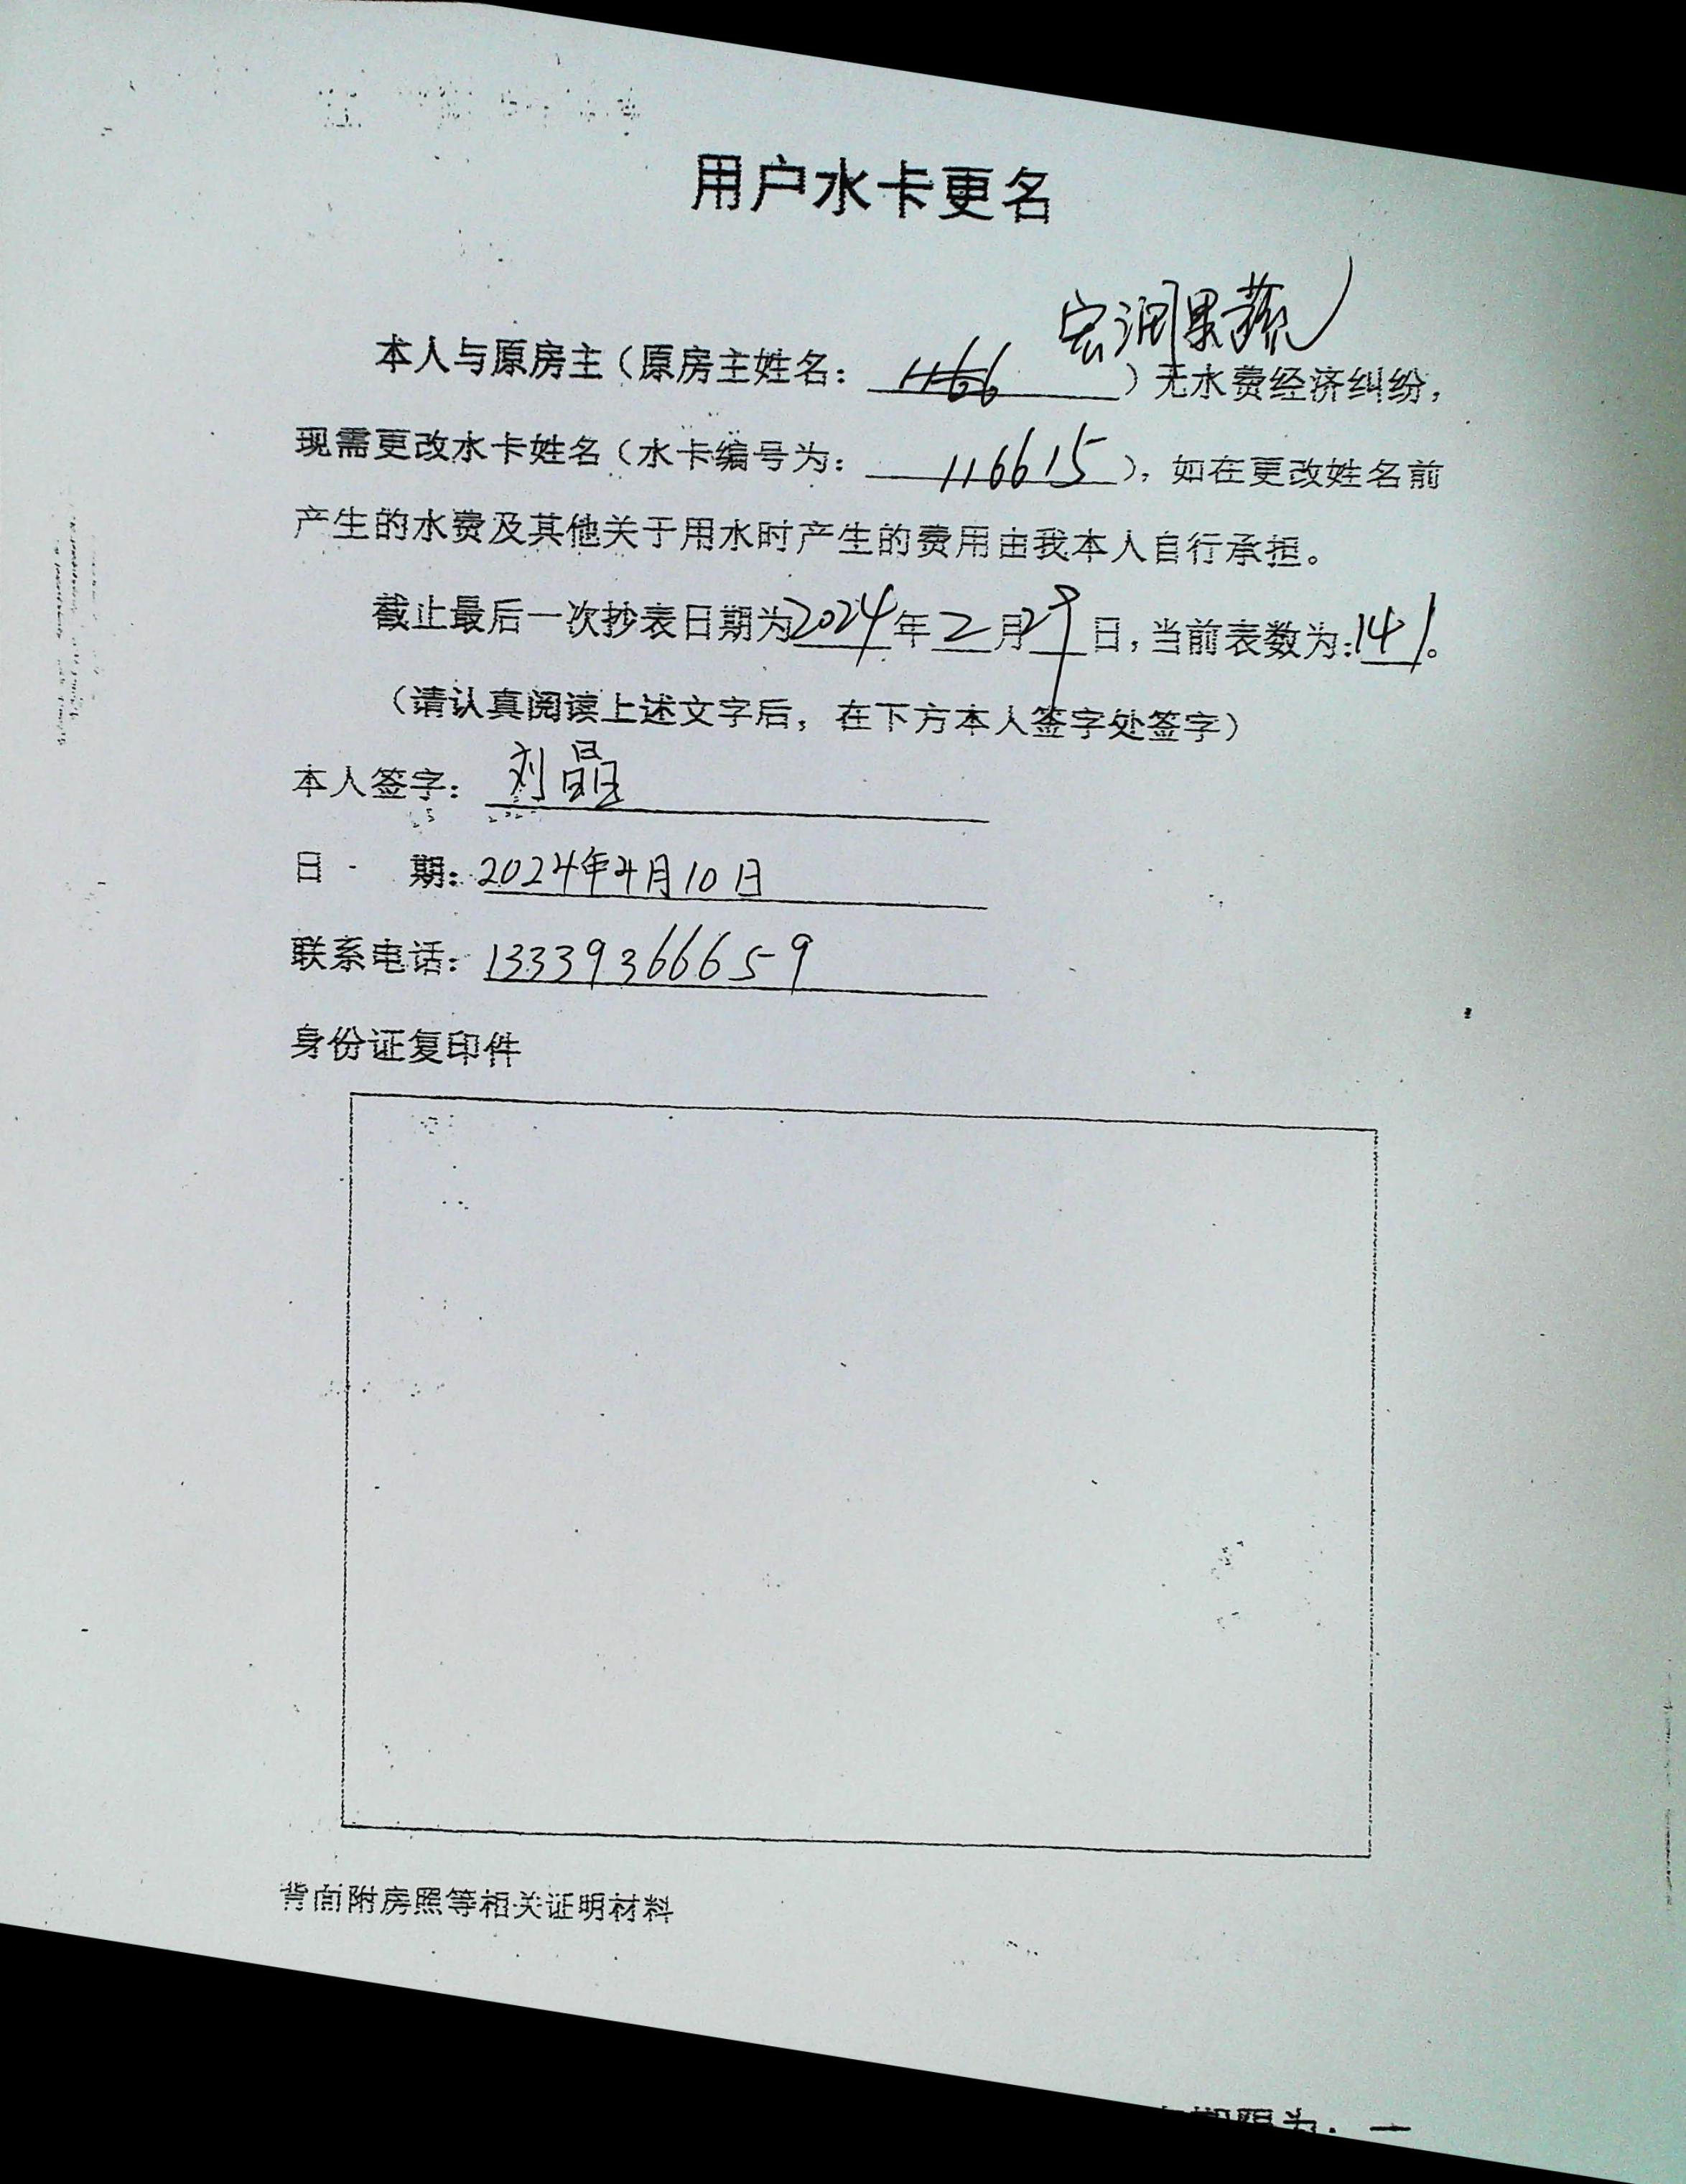 用户水卡更名
宏润果蔬
本人与原房主（原房主姓名：1166）无水费经济纠纷，
现需更改水卡姓名（水卡编号为：116615），如在更改姓名前
产生的水费及其他关于用水时产生的费用由我本人自行承担。
截止最后一次抄表日期为2024年2月29日，当前表数为：141。
（请认真阅读上述文字后，在下方本人签字处签字）
本人签字：刘晶
日 期：2024年4月10日
联系电话：13339366659
身份证复印件
背面附房照等相关证明材料
期限为：一